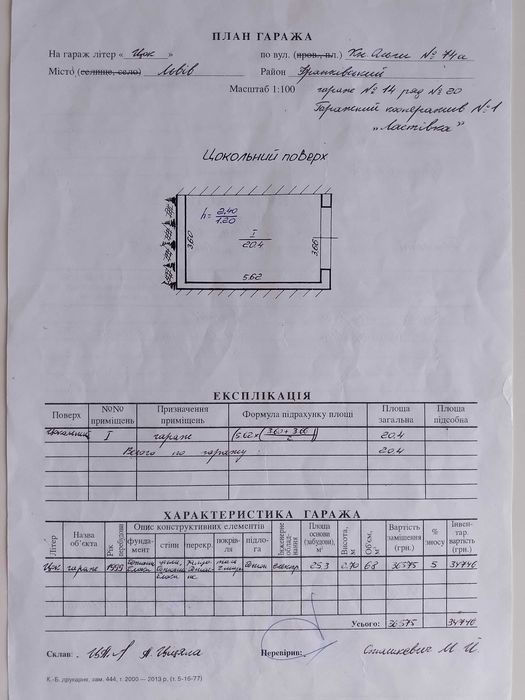 ПЛАН ГАРАЖА
На гараж літер « Цок » по вул. (пров., пл.) Кн. Ольги № 74а
Місто (селище, село) Львів Район Франківський
Масштаб 1:100 гараж № 14 ряд № 20
Гаражний кооператив № 1
„Ластівка"
Цокольний поверх
h= 2.40 / 1.20
I / 20.4
3.60
3.66
5.62
ЕКСПЛІКАЦІЯ
Поверх №№ приміщень Призначення приміщень Формула підрахунку площі Площа загальна Площа підсобна
цокольний I гараж (5.62×(3.60+3.66 / 2)) 20.4
Всього по гаражу: 20.4
ХАРАКТЕРИСТИКА ГАРАЖА
Літер Назва об'єкта Рік перебудови Опис конструктивних елементів Інженерне обладнання Площа основи (забудови), м² Висота, м Об'єм, м³ Вартість заміщення (грн.) % зносу Інвентар. вартість (грн.)
фундамент стіни перекр. покрівля підлога
Цок гараж 1999 електр 25.3 2.70 68 36575 5 34746
Усього: 36575 34746
Склав: Перевірив:
К.-Б. друкарня. зам. 444, т. 2000 — 2013 р. (т. 5-16-77)